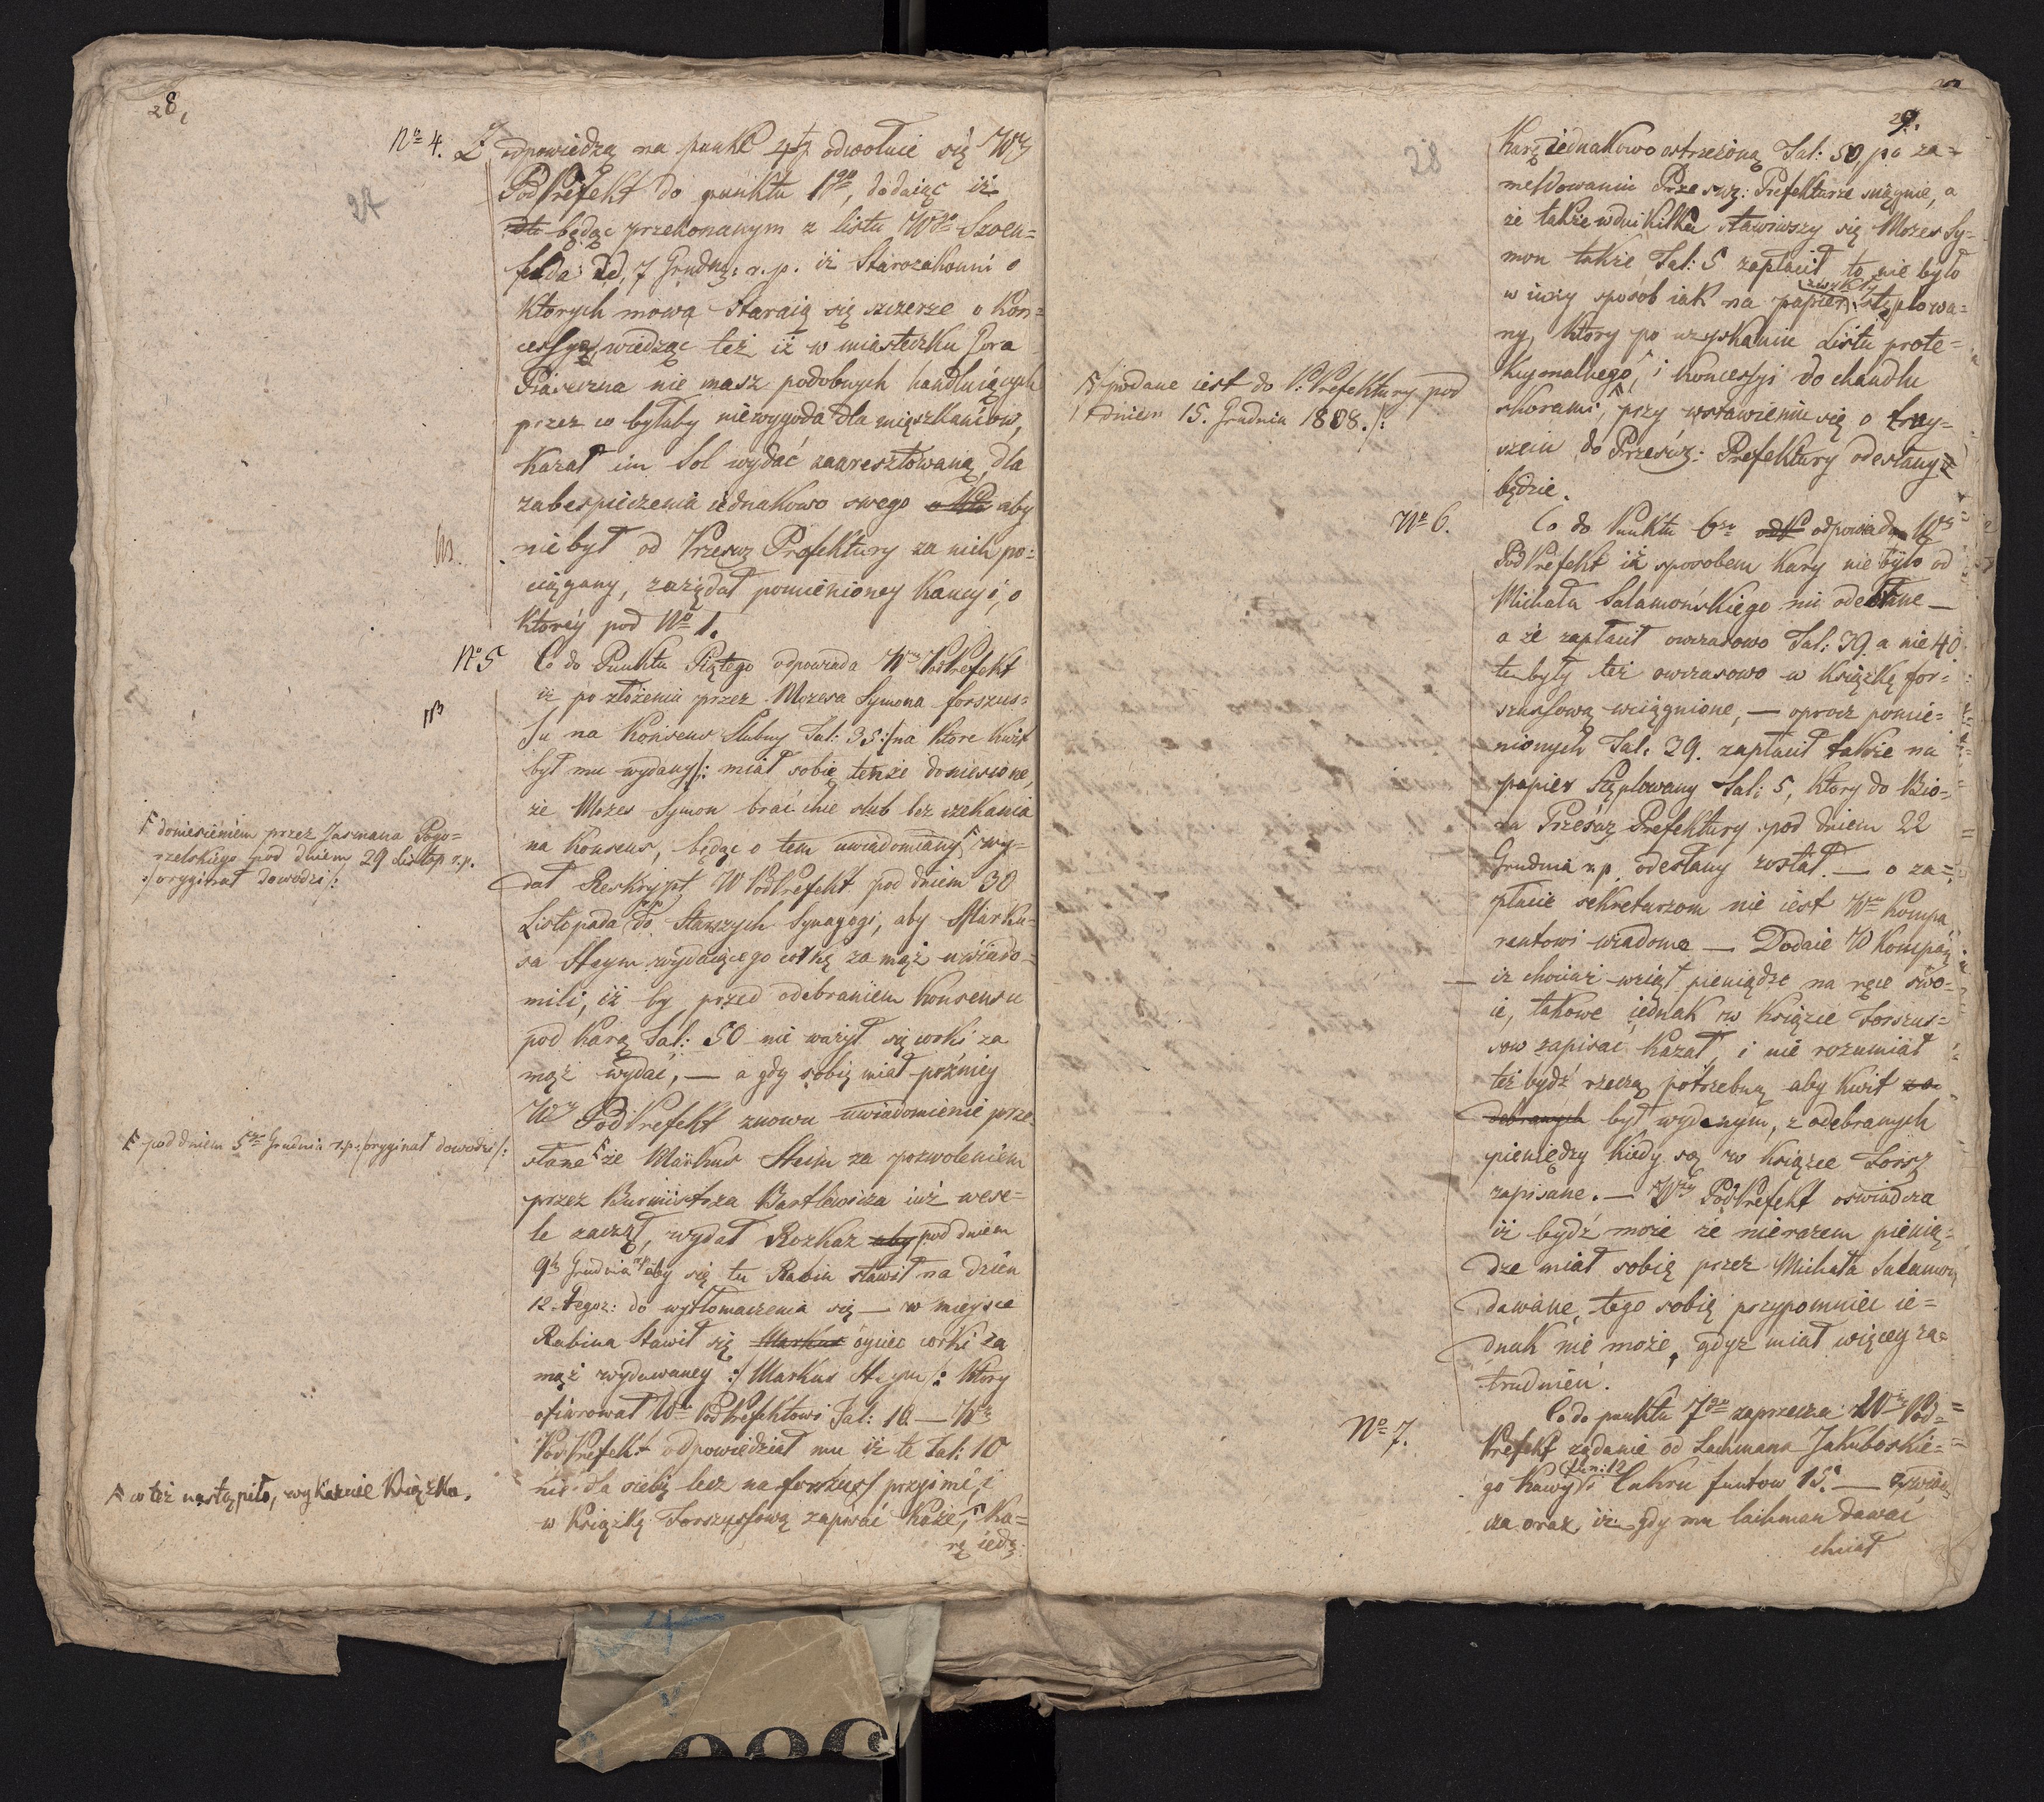 28,
27
No 4. Z odpowiedzą na punkt 4ty odwołuie się Wy
PodPrefekt do punktu 1go, dodaiąc iż
będąc przekonanym z listu Wgo Szoen=
felda dd. 7 Grudn: r.p. iż Starozakonni o
ktorych mową staraią się szczerze o Kon=
cessyą, wiedząc też iż w miasteczku Gora
nie masz podobnych handluiących
przez co byłaby niewygoda dla mięszkańcow,
Kazał im Sol wydać zaaresztowaną, dla
zabespieczenia iednakowo swego aby
nie był od Przesw Prefektury za nich po=
ciągany, zażądał pomienioney Kaucyi, o
ktorey pod No 1.
No 5 Co do Punktu Piątego odpowiada Wny PodPrefekt
iż po złożeniu przez Mozesa Symona forszus=
su na Konsens Slubny Tal: 35 :/na ktore kwit
był mu wydany/: miał sobie tenże doniesione,
że Mozes Symon brać chce slub bez czekania
na Konsens, będąc o tem uwiadomiany wy=
dał Reskrypt W PodPrefekt pod dniem 30
Listopada rp do Starszych Synagogi, aby Marku=
sa Heym wydaiącego corkę za mąż uwiado=
mili, iż by przed odebraniem Konsensu
pod karą Tal: 50 nie ważył się corki za
mąż wydać, — a gdy sobie miał poźniey
Wny PodPrefekt znowu uwiadomienie prze=
słane że Markus Heim za pozwoleniem
przez Burmistrza Bartlewicza iuż wese=
le zaczął, wydał Rozkaz aby pod dniem
9 Grudnia rp aby się tu Rabin stawił na dzien
12 tegoż: do wytłomaczenia się — w mieysce
Rabina stawił się Markus oyciec corki za
mąż wydawaney :/ Markus Heym /: ktory
ofiarował Wmu PodPrefektowi Tal: 10 — Wny
PodPrefekt odpowiedział mu iż te Tal: 10
nie dla siebie lecz na forszuss przyimie, i
w Książkę Forszussową zapisać każe, Ka=
rę ied=
doniesieniem przez Jasmana Pogo=
rzelskiego pod dniem 29 Listop r.p.
:/oryginał dowodzi/:
pod dniem 5go Grudnia r.p: /oryginał dowodzi/:
co też nastąpiło, wykazuie Książka.
29.
28
Karę iednakowo ostrzeżoną Tal: 50, po za=
meldowaniu Przesw: Prefekturze sciągnie, a
że także w dni kilka stawiwszy się Mozes Sy=
mon także Tal: 5 zapłacił to nie było
w inny sposob iak na zwykły papier stęplowa=
ny, ktory po uzyskaniu Listu prote=
kcyonalnego, i koncessyi do chandlu
skorami, przy wstawieniu się o
do Przesw: Prefektury odesłany
będzie.
podane iest do P. Prefektury pod
dniem 15. Grudnia 1808./:
No 6. Co do Punktu 6go odpowiada Wny
PodPrefekt iż sposobem kary nie było od
Michała Salamońskiego nic odebrane —
a że zapłacił owczasowo Tal: 39. a nie 40
te były też owczasowo w Książkę for=
szussową wciągnione, — oprocz pomie=
nionych Tal: 39. zapłacił także na
papier Stęplowany Tal: 5, ktory do Bio=
ra Przesw Prefektury pod dniem 22
Grudnia r.p. odesłany został. — o za=
płacie sekretarzom nie iest Wmu Kompa
rentowi wiadome — Dodaie W Kompar
iż chociaż wziął pieniądze na ręce swo=
ie, takowe iednak w Książce Forszus=
sow zapisać kazał, i nie rozumiał
też bydź rzeczą potrzebną aby kwit za
debranych był wydanym, z odebranych
pieniędzy kiedy są w Książce Forsz
zapisane. — Wny PodPrefekt oswiadcza
iż bydź może że nierazem pienią=
dze miał sobie przez Michała Salamon
dawane, tego sobie przypomniec ie=
dnak nie może, gdyż miał więcey za=
trudnień.
No 7. Co do punktu 7go zaprzecza Wny Pod=
Prefekt żądanie od Lachmana Jakuboskie=
go Kawy fun: 12 i Cukru funtow 15. —
oraz, iż gdy mu lachman dawać
chciał